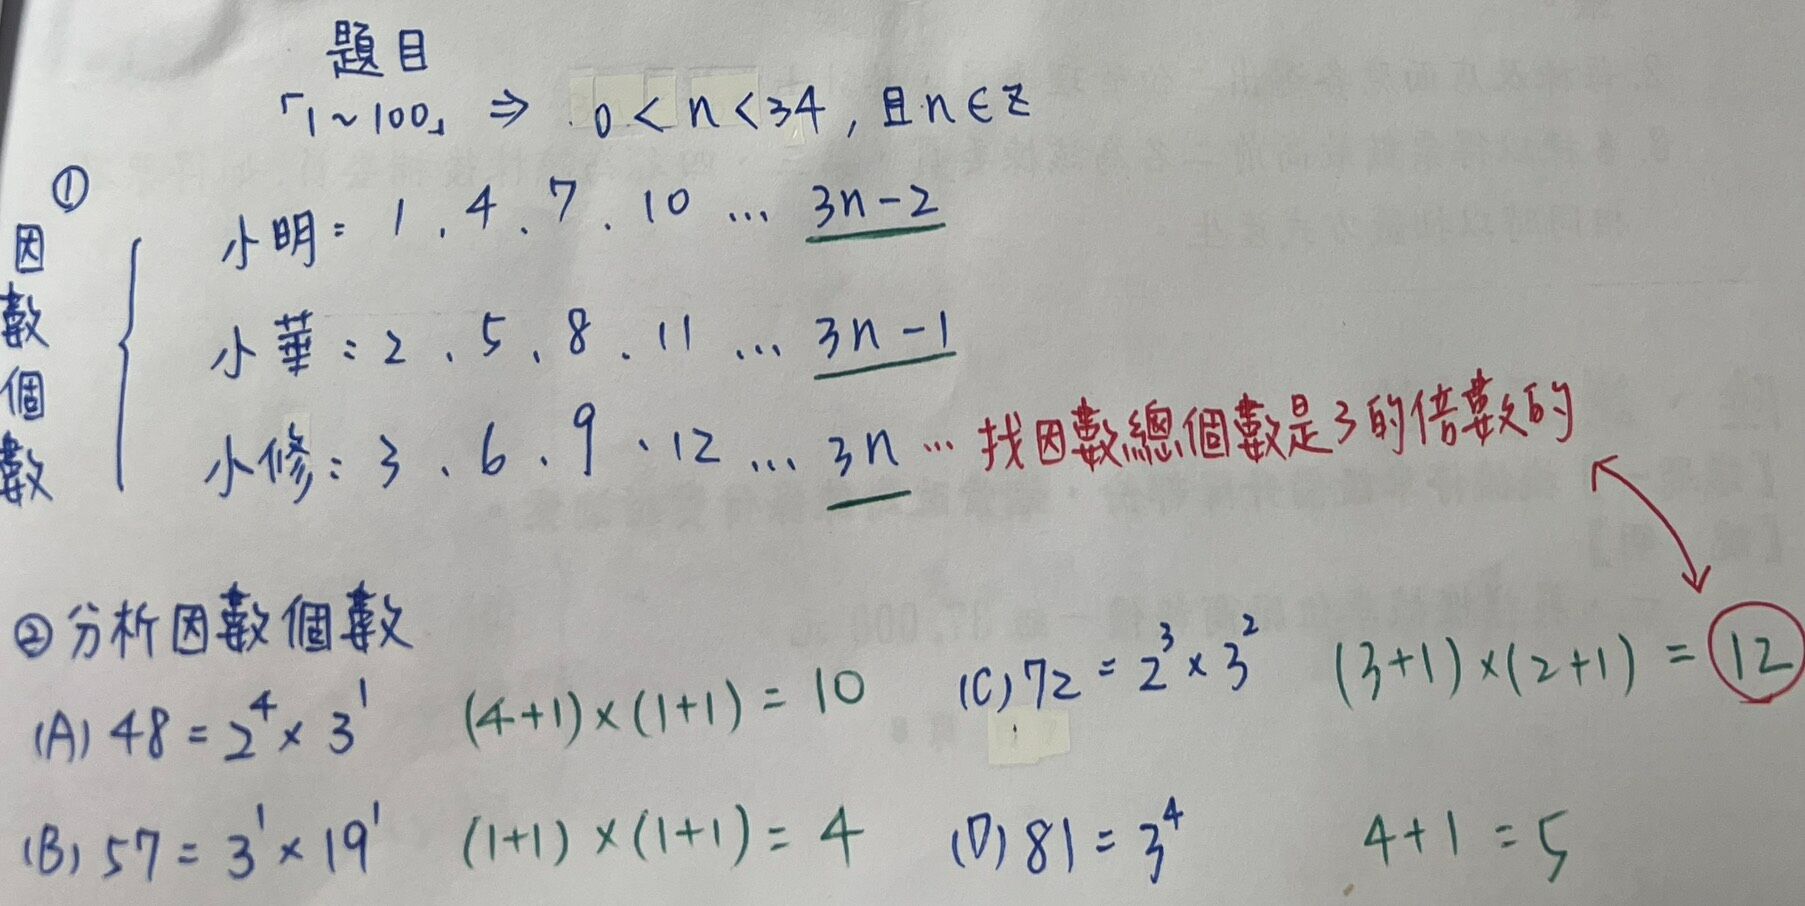 題目
「1~100」 ⇒ 0 < n < 34 , 且 n ∈ Z
①
因數個數
小明: 1 、 4 、 7 、 10 … 3n-2
小華: 2 、 5 、 8 、 11 … 3n-1
小修: 3 、 6 、 9 、 12 … 3n … 找因數總個數是3的倍數的
②分析因數個數
(A) 48 = 2⁴ × 3¹ (4+1)×(1+1) = 10 (C) 72 = 2³ × 3² (3+1)×(2+1) = 12
(B) 57 = 3¹ × 19¹ (1+1)×(1+1) = 4 (D) 81 = 3⁴ 4+1 = 5